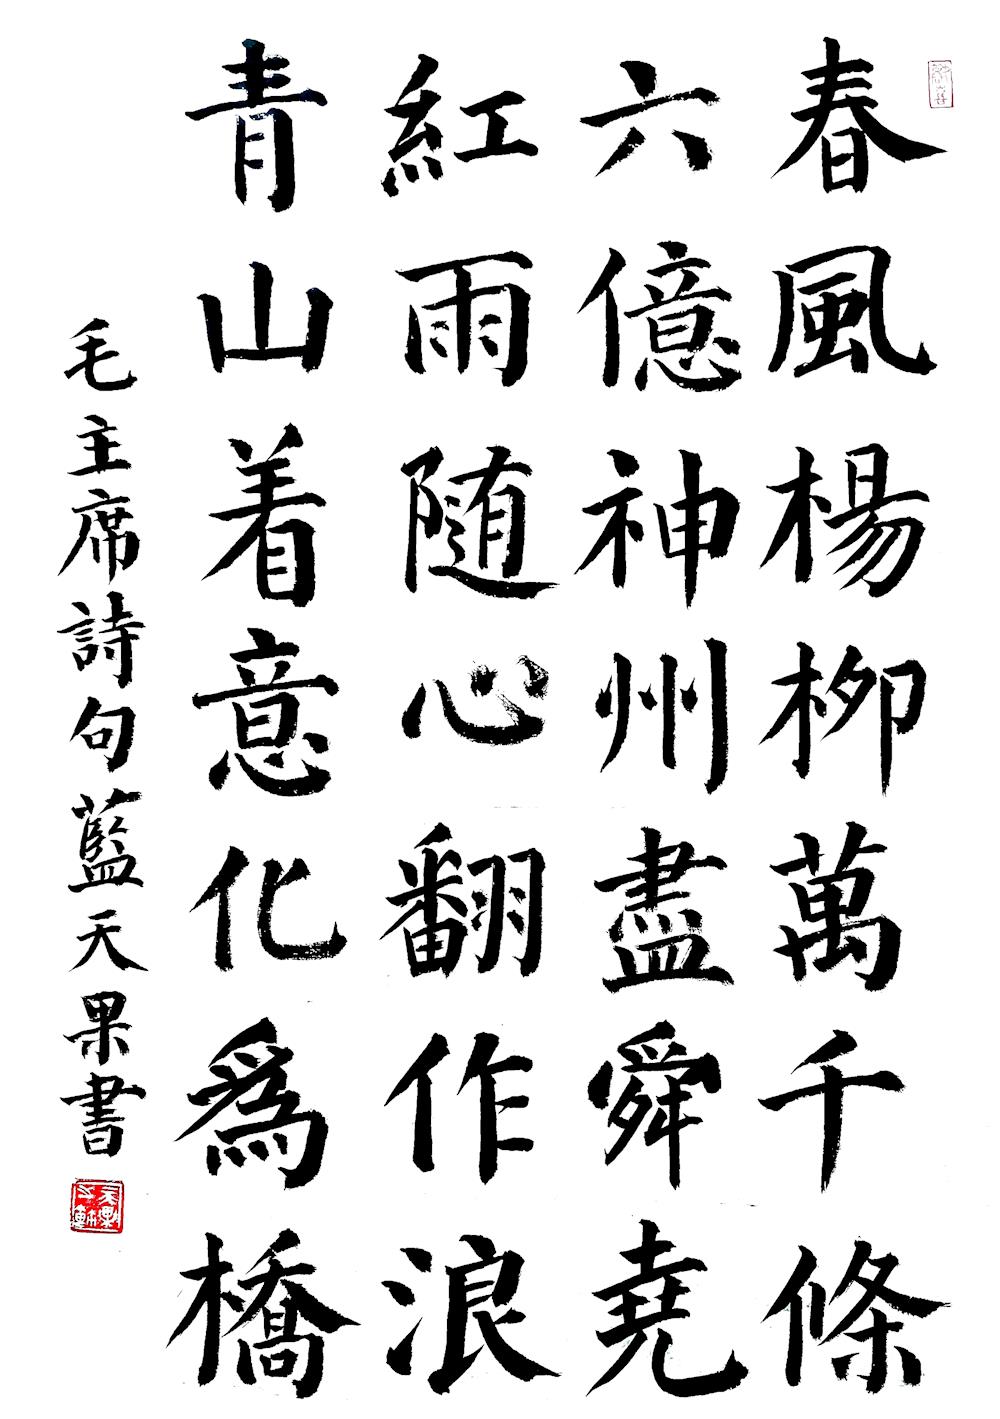 春風楊柳萬千條
六億神州盡舜堯
紅雨随心翻作浪
青山着意化為橋
毛主席詩句藍天果書